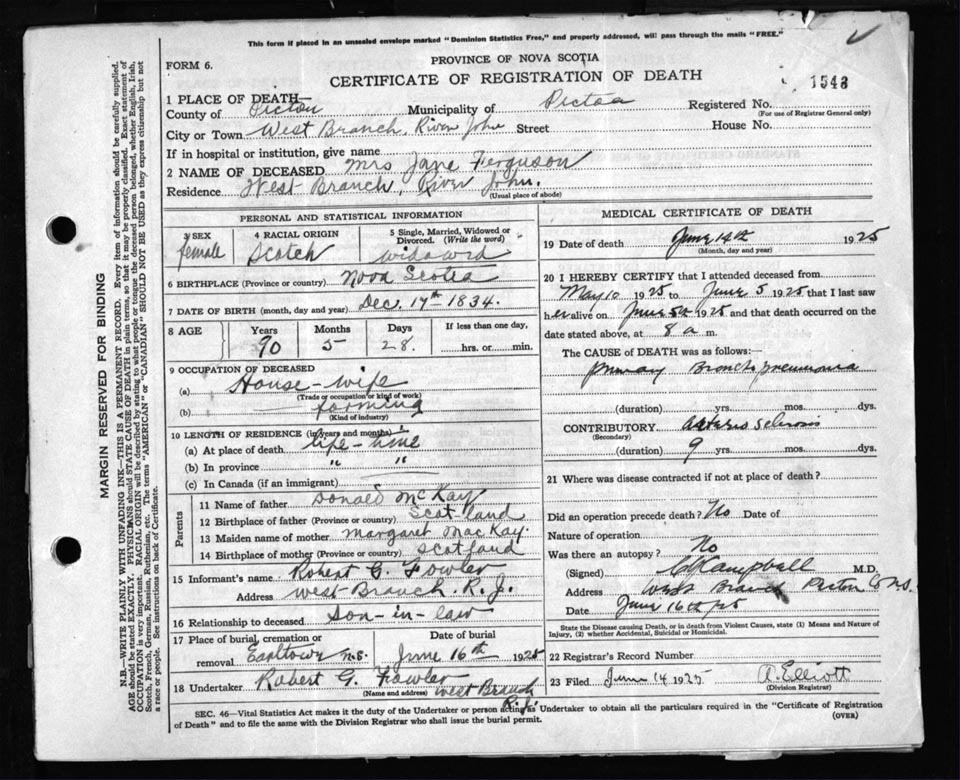 This form if placed in an unsealed envelope marked "Dominion Statistics Free," and properly addressed, will pass through the mails "FREE."
PROVINCE OF NOVA SCOTIA
FORM 6.
CERTIFICATE OF REGISTRATION OF DEATH
1543
1 PLACE OF DEATH—
County of Pictou Municipality of Pictou Registered No.
(For use of Registrar General only)
City or Town West Branch, River John Street House No.
If in hospital or institution, give name
2 NAME OF DECEASED Mrs Jane Ferguson
Residence West Branch, River John.
(Usual place of abode)
PERSONAL AND STATISTICAL INFORMATION
3 SEX female
4 RACIAL ORIGIN Scotch
5 Single, Married, Widowed or Divorced. (Write the word)
6 BIRTHPLACE (Province or country) Nova Scotia
7 DATE OF BIRTH (month, day and year) Dec. 17th 1834.
8 AGE Years Months Days If less than one day,
90 5 28. hrs. or min.
9 OCCUPATION OF DECEASED
(a) House-wife
(Trade or occupation or kind of work)
(b) farming
(Kind of industry)
10 LENGTH OF RESIDENCE (in years and months)
(a) At place of death life-time
(b) In province " "
(c) In Canada (if an immigrant)
Parents
11 Name of father Donald McKay
12 Birthplace of father (Province or country) Scotland
13 Maiden name of mother Margaret MacKay.
14 Birthplace of mother (Province or country) Scotland
15 Informant's name Robert G. Fowler
Address West Branch. R.J.
16 Relationship to deceased Son-in-law
17 Place of burial, cremation or removal Earltown N.S.
Date of burial June 16th 1925
18 Undertaker Robert G. Fowler West Branch R.J.
(Name and address)
MEDICAL CERTIFICATE OF DEATH
19 Date of death June 14th 1925
(Month, day and year)
20 I HEREBY CERTIFY that I attended deceased from
May 10 1925 to June 5 1925 that I last saw
her alive on June 5th 1925 and that death occurred on the
date stated above, at 8 a m.
The CAUSE OF DEATH was as follows:
primary Broncho pneumonia
(duration) yrs. mos. dys.
CONTRIBUTORY Arterio Sclerosis
(Secondary)
(duration) 9 yrs. mos. dys.
21 Where was disease contracted if not at place of death?
Did an operation precede death? No Date of
Nature of operation
Was there an autopsy? No
(Signed) Campbell M.D.
Address West Branch Pictou Co N.S.
Date June 16th 25
State the Disease causing Death, or in death from Violent Causes, state (1) Means and Nature of Injury, (2) whether Accidental, Suicidal or Homicidal.
22 Registrar's Record Number
23 Filed June 1925 A. Elliott
(Division Registrar)
SEC. 46—Vital Statistics Act makes it the duty of the Undertaker or person acting as Undertaker to obtain all the particulars required in the "Certificate of Registration
of Death" and to file the same with the Division Registrar who shall issue the burial permit.
(OVER)
MARGIN RESERVED FOR BINDING
N.B.—WRITE PLAINLY WITH UNFADING INK—THIS IS A PERMANENT RECORD. Every item of information should be carefully supplied.
AGE should be stated EXACTLY. PHYSICIANS should STATE CAUSE OF DEATH in plain terms, so that it may be properly classified. Exact statement of
OCCUPATION is very important. RACIAL ORIGIN will be described by stating to what people or tongue the deceased person belonged, whether English, Irish,
Scotch, French, German, Russian, Ruthenian, etc. The terms "AMERICAN" or "CANADIAN" SHOULD NOT BE USED as they express citizenship but not
a race or people. See instructions on back of Certificate.